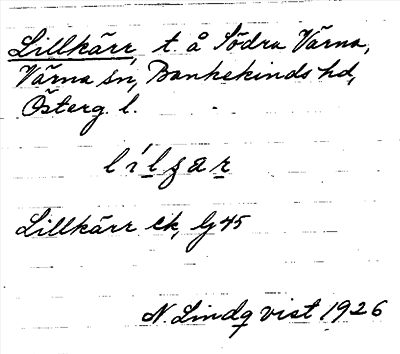 Lillkärr, t. å Södra Värna,
Värna sn, Bankekinds hd,
Österg. l.
lílʒar
Lillkärr ek, Gj 45
N. Lindqvist 1926